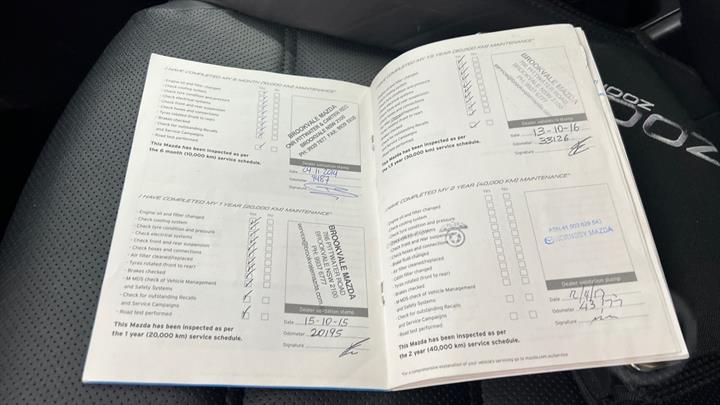 I HAVE COMPLETED MY 6 MONTH (10,000 KM) MAINTENANCE*
Yes No
- Engine oil and filter changed
- Check cooling system
- Check tyre condition and pressure
- Check electrical systems
- Check front and rear suspension
- Check hoses and connections
- Tyres rotated (front to rear)
- Brakes checked
- Check for outstanding Recalls
and Service Campaigns
- Road test performed
This Mazda has been inspected as per
the 6 month (10,000 km) service schedule.
BROOKVALE MAZDA
BROOKVALE NSW 2100
Dealer validation stamp
Date
Odometer 9487
Signature
I HAVE COMPLETED MY 1 YEAR (20,000 KM) MAINTENANCE*
Yes No
- Engine oil and filter changed
- Check cooling system
- Check tyre condition and pressure
- Check electrical systems
- Check front and rear suspension
- Check hoses and connections
- Air filter cleaned/replaced
- Tyres rotated (front to rear)
- Brakes checked
- M-MDS check of Vehicle Management
and Safety Systems
- Check for outstanding Recalls
and Service Campaigns
- Road test performed
This Mazda has been inspected as per
the 1 year (20,000 km) service schedule.
BROOKVALE MAZDA
PITTWATER ROAD
BROOKVALE NSW 2100
PH: 9937 6777
Dealer validation stamp
Date 15-10-15
Odometer 20195
Signature
I HAVE COMPLETED MY 1.5 YEAR (30,000 KM) MAINTENANCE*
Yes No
- Engine oil and filter changed
- Check cooling system
- Check tyre condition and pressure
- Check electrical systems
- Check front and rear suspension
- Check hoses and connections
- Tyres rotated (front to rear)
- Brakes checked
- Check for outstanding Recalls
and Service Campaigns
- Road test performed
This Mazda has been inspected as per
the 1.5 year (30,000 km) service schedule.
BROOKVALE MAZDA
Dealer validation stamp
Date 13-10-16
Odometer 33126
Signature
I HAVE COMPLETED MY 2 YEAR (40,000 KM) MAINTENANCE*
Yes No
- Engine oil and filter changed
- Check cooling system
- Check tyre condition and pressure
- Check front and rear suspension
- Check hoses and connections
- Brake fluid changed
- Air filter cleaned/replaced
- Cabin filter changed
- Tyres rotated (front to rear)
- Brakes checked
- M-MDS check of Vehicle Management
and Safety Systems
- Check for outstanding Recalls
and Service Campaigns
- Road test performed
This Mazda has been inspected as per
the 2 year (40,000 km) service schedule.
MAZDA
Dealer validation stamp
Date
Odometer
Signature
*For a comprehensive explanation of your vehicle's servicing go to mazda.com.au/service